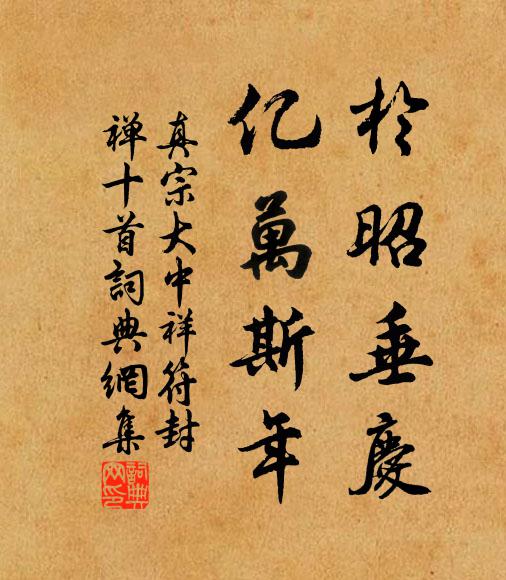 於昭垂慶
亿萬斯年
真宗大中祥符封
禅十首詞典網集
詞典
网印